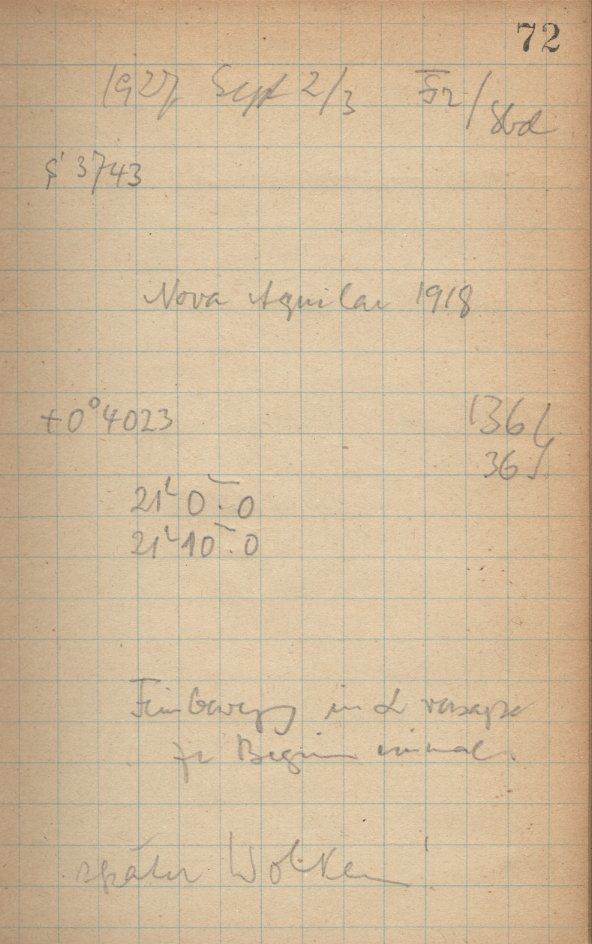 72
1927 Sept 2/3 Fr/Sbd
3743
Nova Aquilae 1918
+0°4023 136
36
21ʰ 0ᵐ.0
21ʰ 10ᵐ.0
Feinbewegg in α versagte
zu Beginn einmal.
später Wolken!